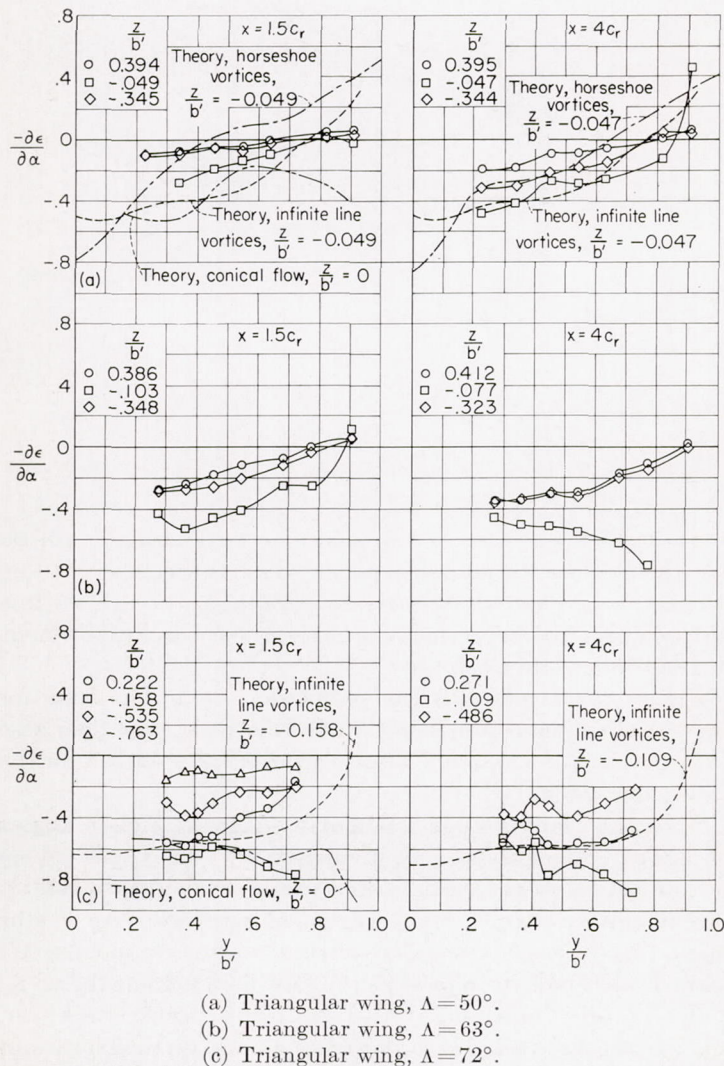 .8
.4
0
-.4
-.8
-∂ϵ/∂α
(a)
z/b'
○ 0.394
□ -.049
◇ -.345
x = 1.5cᵣ
Theory, horseshoe
vortices,
z/b' = -0.049
Theory, infinite line
vortices, z/b' = -0.049
Theory, conical flow, z/b' = 0
z/b'
○ 0.395
□ -.047
◇ -.344
x = 4cᵣ
Theory, horseshoe
vortices,
z/b' = -0.047
Theory, infinite line
vortices, z/b' = -0.047
.8
.4
0
-.4
-.8
-∂ϵ/∂α
(b)
z/b'
○ 0.386
□ -.103
◇ -.348
x = 1.5cᵣ
z/b'
○ 0.412
□ -.077
◇ -.323
x = 4cᵣ
.8
.4
0
-.4
-.8
-∂ϵ/∂α
(c)
z/b'
○ 0.222
□ -.158
◇ -.535
△ -.763
x = 1.5cᵣ
Theory, infinite
line vortices,
z/b' = -0.158
Theory, conical flow, z/b' = 0
z/b'
○ 0.271
□ -.109
◇ -.486
x = 4cᵣ
Theory, infinite
line vortices,
z/b' = -0.109
0 .2 .4 .6 .8 1.0
y/b'
0 .2 .4 .6 .8 1.0
y/b'
(a) Triangular wing, Λ=50°.
(b) Triangular wing, Λ=63°.
(c) Triangular wing, Λ=72°.